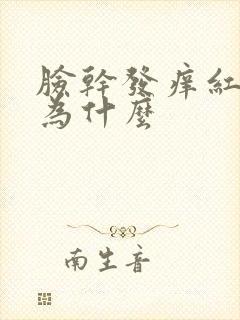 臉幹發痒紅
為什麼
南生音